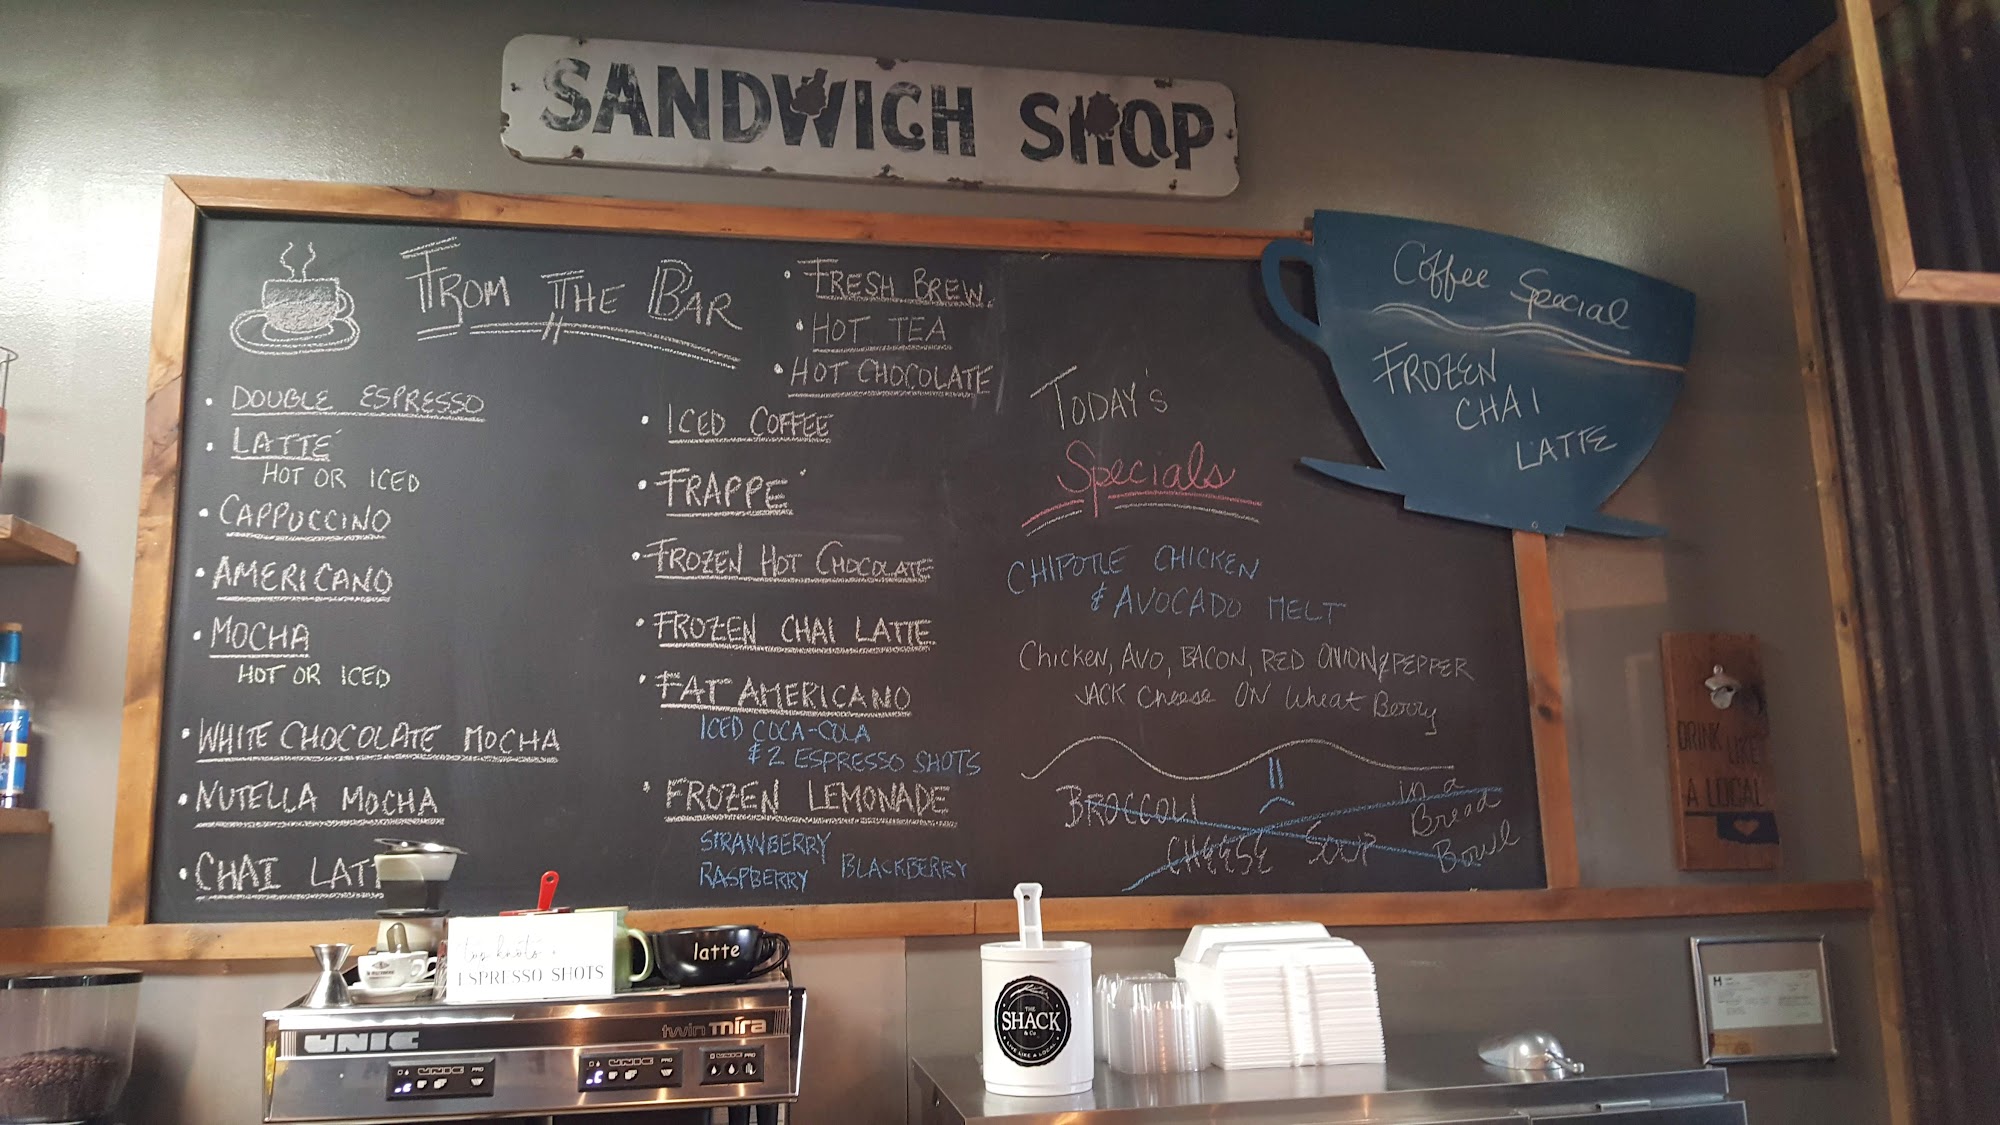 SANDWICH SHOP
FROM THE BAR
• DOUBLE ESPRESSO
• LATTÉ
HOT OR ICED
• CAPPUCCINO
• AMERICANO
• MOCHA
HOT OR ICED
• WHITE CHOCOLATE MOCHA
• NUTELLA MOCHA
• CHAI LATT
• FRESH BREW
• HOT TEA
• HOT CHOCOLATE
• ICED COFFEE
• FRAPPÉ
• FROZEN HOT CHOCOLATE
• FROZEN CHAI LATTE
• FAT AMERICANO
ICED COCA-COLA
& 2 ESPRESSO SHOTS
• FROZEN LEMONADE
STRAWBERRY
RASPBERRY BLACKBERRY
TODAY'S
Specials
CHIPOTLE CHICKEN
& AVOCADO MELT
Chicken, AVO, BACON, RED ONION & PEPPER
JACK Cheese ON Wheat Berry
BROCCOLI
CHEESE SOUP
in a
Bread
Bowl
Coffee Special
FROZEN
CHAI
LATTE
DRINK LIKE
A LOCAL
ESPRESSO SHOTS
latte
UNIC
twin mira
UNIC PRO
UNIC PRO
UNIC PRO
THE
SHACK
& Co
LIVE LIKE A LOCAL
H